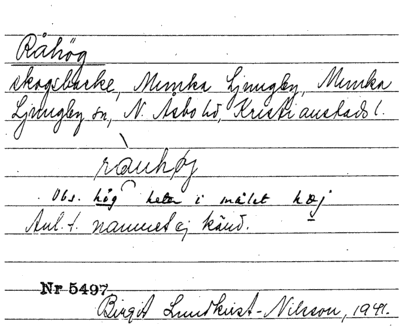 Råhög
skogsbacke, Munka Ljungby, Munka
Ljungby sn, N. Åsbo hd, Kristianstads l.
rånhøj
Obs. hög heter i målet høj
Anl. t. namnet ej känd.
Nr 5497
Birgit Lundkvist-Nilsson, 1941.